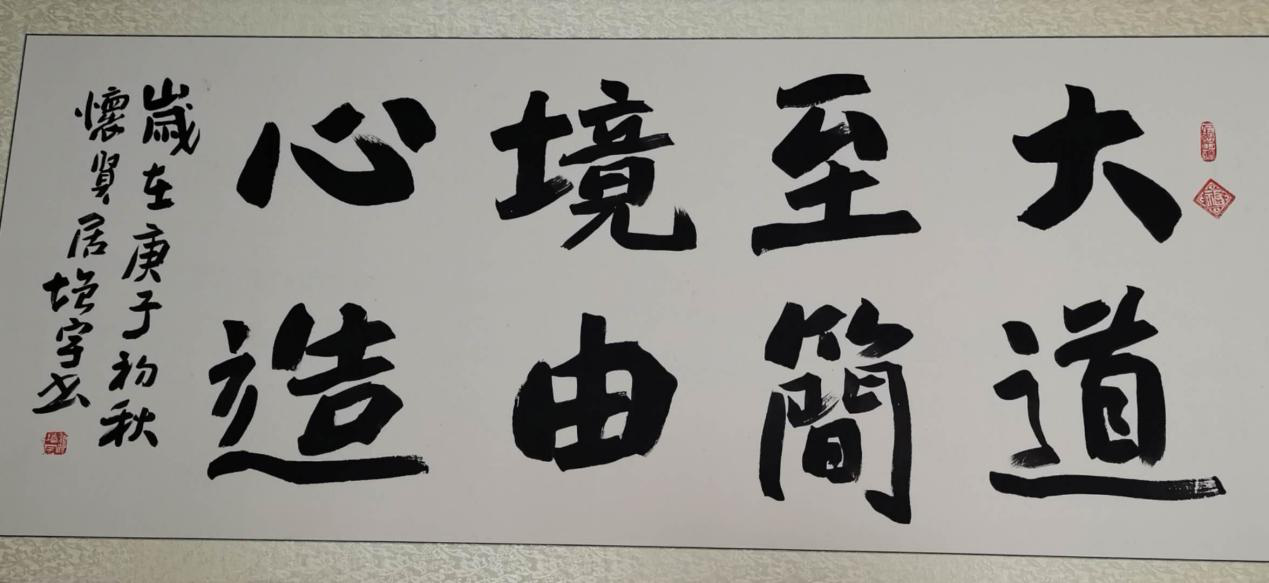 大道
至簡
境由
心造
歲在庚子初秋
懷賢居增字书